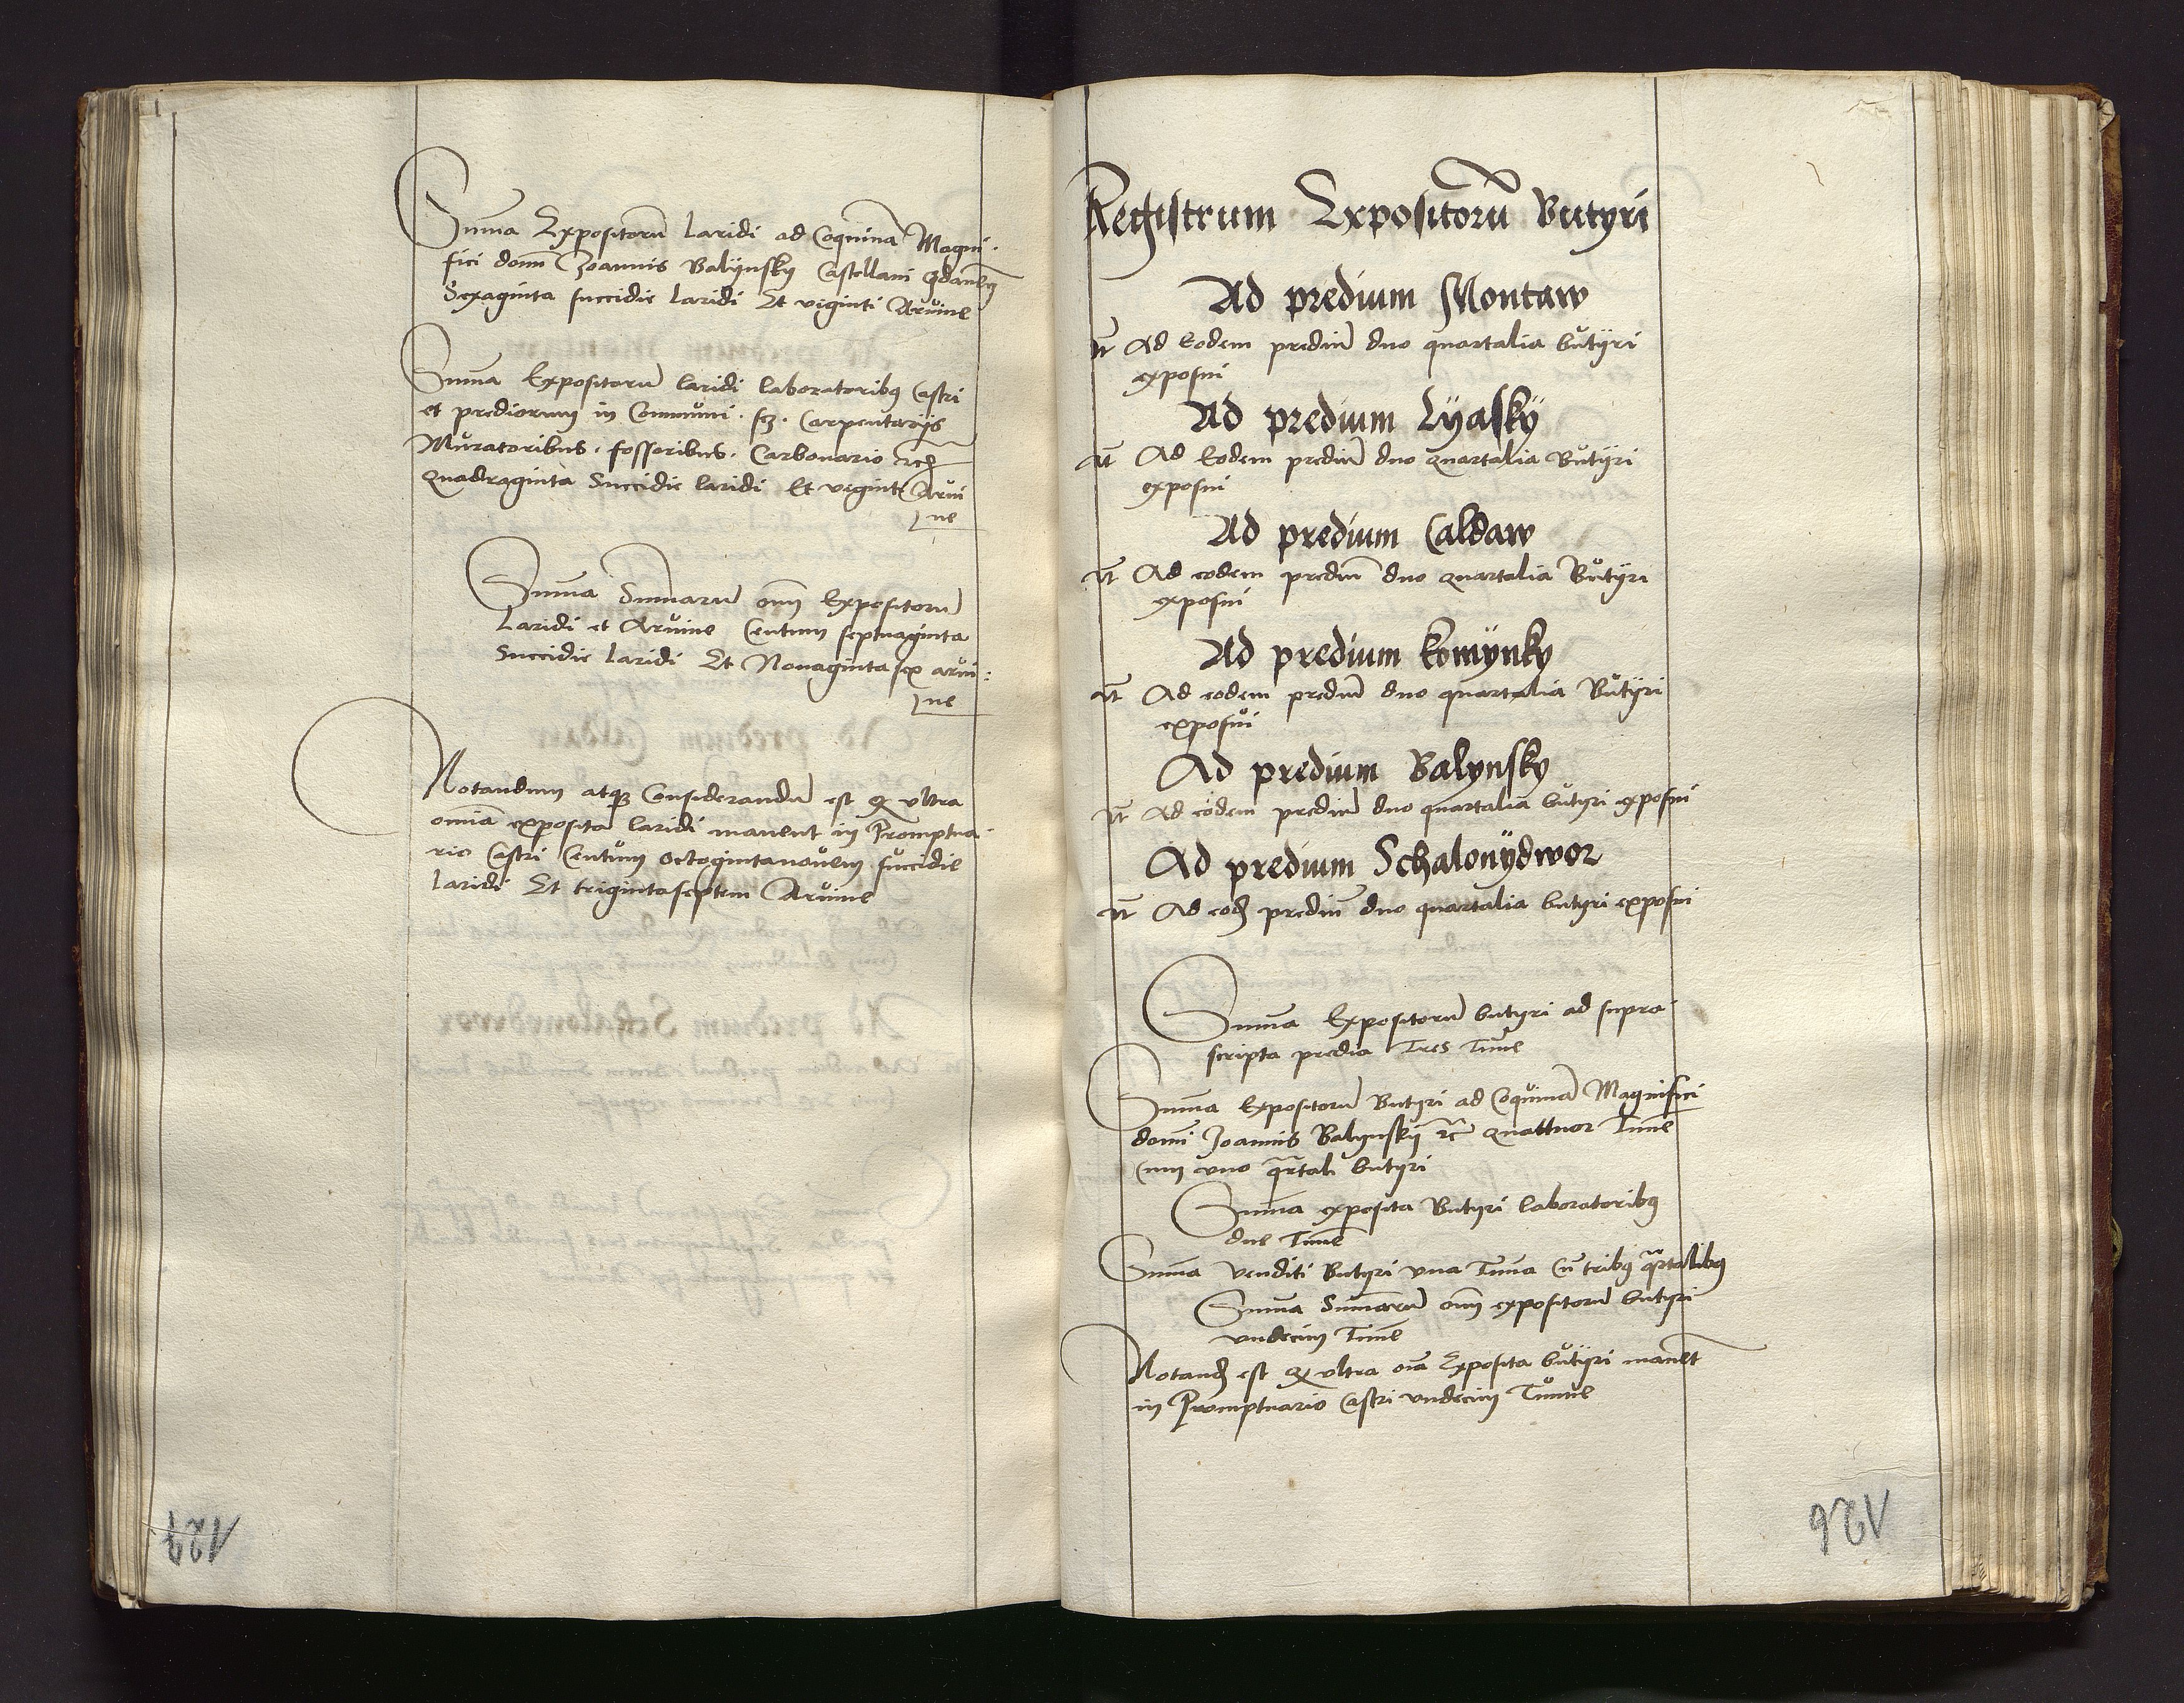 Suma Expositoru Laridi ad Coquina Magni-
fici domi Joannis Balÿnsky Castellani gdanen
Sexaginta succidie laridi Et viginti Arvine
Suma Expositoru laridi laboratoribus Castri
et prediorum in Communi. scz. Carpentarijs
Muratoribus. fossoribus. Carbonario etc
Quadraginta Succidie laridi Et viginti Arvi
ne
Suma Sumaru oim Expositoru
Laridi et Arvine Centum septuaginta
Succidie laridi Et Nonaginta sex arvi:
ne
Notandum atque Considerandu est quod ultra
omia exposita laridi manent in Promptua-
rio Castri Centum octogintanovem succidie
laridi Et trigintaseptem Arvine
Registrum Expositoru Butyri
Ad predium Montaw
It Ad Eodem prediu duo quartalia butÿri
exposui
Ad predium Lÿaskÿ
It Ad Eodem prediu duo quartalia Butÿri
exposui
Ad predium Caldaw
It Ad eodem prediu duo quartalia Butÿri
exposui
Ad predium komÿnky
It Ad eodem prediu duo quartalia Butÿri
exposui
Ad predium Balynsky
It Ad eodem prediu duo quartalia butyri exposui
Ad predium Schalonÿdwor
It Ad eod prediu duo quartalia butyri exposui
Suma Expositoru butyri ad supra
scripta predia Tres Tune
Suma Expositoru Butyri ad Coquina Magnifici
domi Joannis Balynskÿ etc quattuor Tune
Cum uno qrtali butyri
Suma exposita Butyri laboratoribus
due Tune
Suma venditi Butyri una Tuna Cu tribus qrtalibus
Suma Sumaru oim expositoru butyri
undecim Tune
Notand est quod ultra oia Exposita butÿri manet
in Promptuario Castri undecim Tunne
127
126